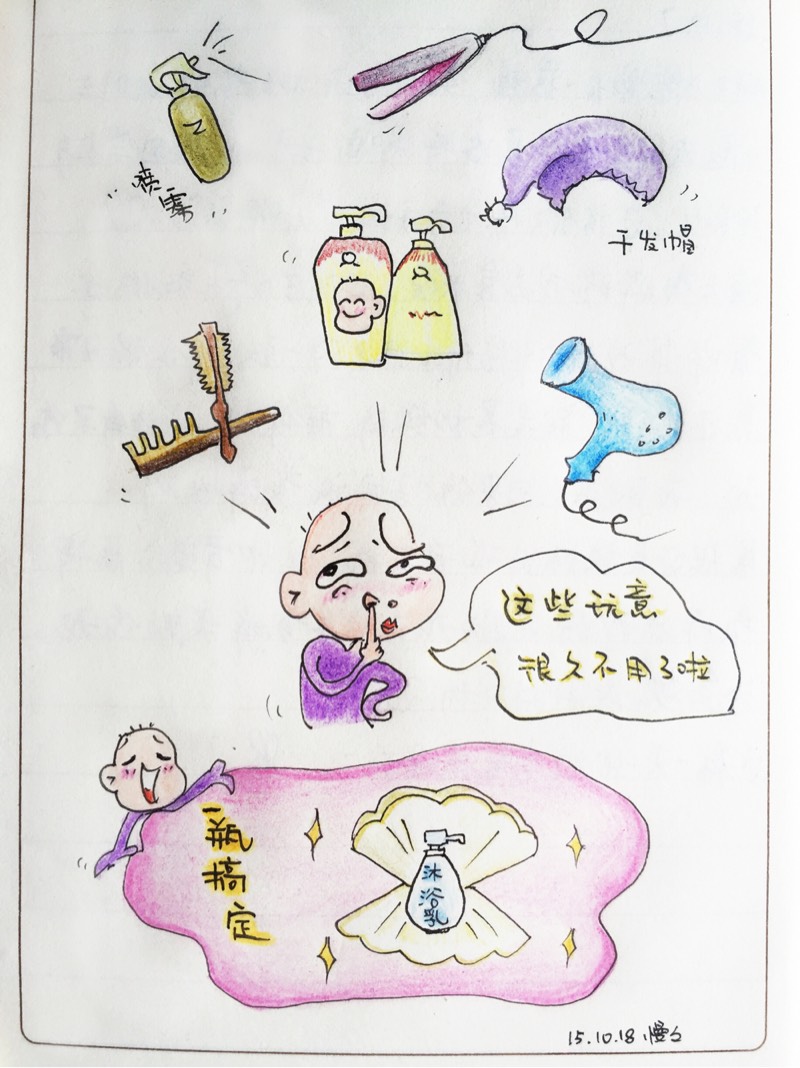 喷雾
干发帽
这些玩意
很久不用了啦
一瓶搞定
沐浴乳
15.10.18